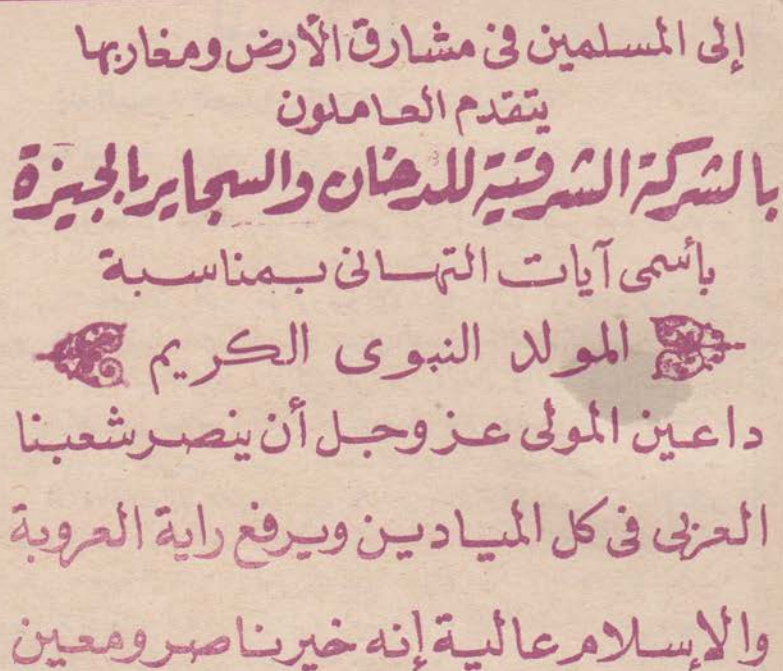 إلى المسلمين فى مشارق الأرض ومغاربها
يتقدم العاملون
بالشركة الشرقية للدخان والسجاير بالجيزة
بأسمى آيات التهانى بمناسبة
المولد النبوى الكريم
داعين المولى عز وجل أن ينصر شعبنا
العربى فى كل الميادين ويرفع راية العروبة
والإسلام عالية إنه خير ناصر ومعين